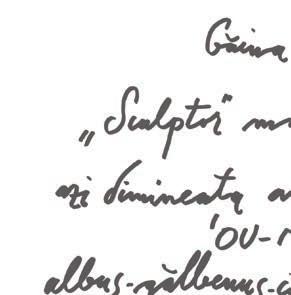 Găina
„Sculptor"
azi dimineața
'OU-
albus-gălbenuș-